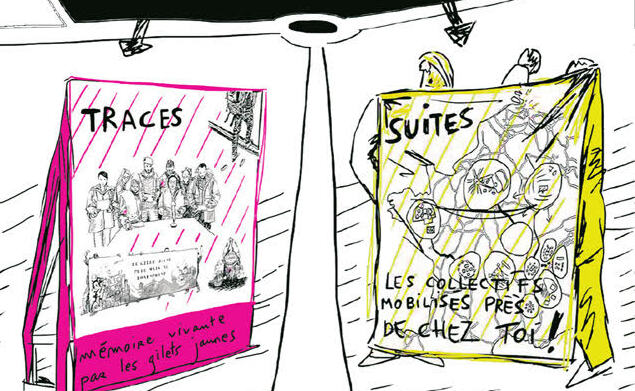 TRACES
mémoire vivante
par les gilets jaunes
SUITES
LES COLLECTIFS
MOBILISES PRES
DE CHEZ TOI !